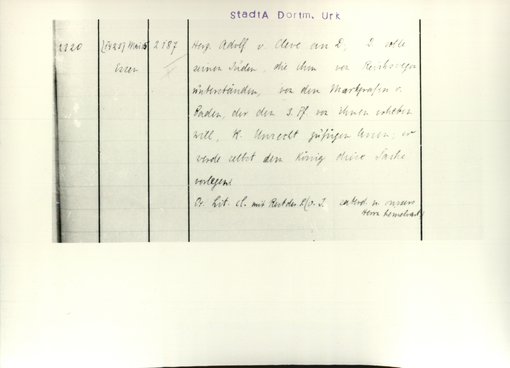 StadtA Dortm. Urk
2220 [1425] Mai 5 2187 Herz. Adolf v. Cleve an D., D. solle
seinen Juden, die ihm von Reichswegen
unterständen, von dem Markgrafen v.
Baden, der den 3. Pf. von ihnen erheben
will, K. Unrecht zufügen lassen; er
werde selbst dem König diese Sache
vorlegen.
Or. Lit. cl. mit Rest des S. v. J. in unsers
Herrn hemelvart